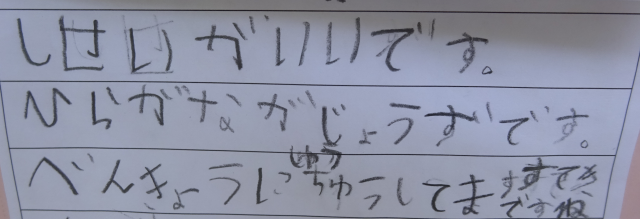 しせいがいいです。
ひらがながじょうずです。
べんきょうにしゅうちゅうしてますすてきですね